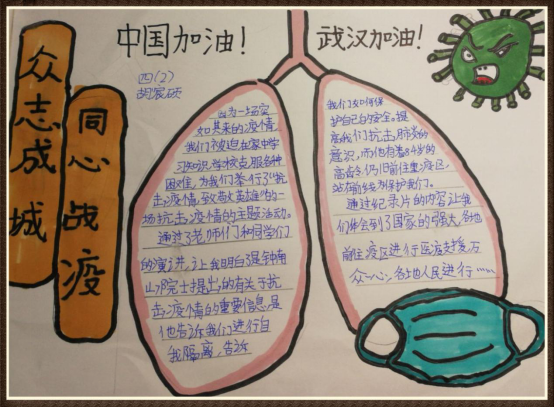 中国加油！
武汉加油！
众志成城
同心战疫
四(2)
胡宸硕
因为一场突
如其来的疫情，
我们被迫在家中学
习知识，学校克服各种
困难，为我们举行了"抗
击疫情，致敬英雄"的一
场抗击疫情的主题活动。
通过了老师们和同学们
的演讲，让我明白了是钟南
山院士提出的有关于抗
击疫情的重要信息，是
他告诉我们进行自
我隔离，告诉
我们如何保
护自己的安全，提
高我们抗击肺炎的
意识，而他有着84岁的
高龄仍旧前往重疫区，
站在前线为保护我们。
通过纪录片的内容让我
们体会到了国家的强大，各地
前往疫区进行医疗支援，万
众一心，各地人民进行……